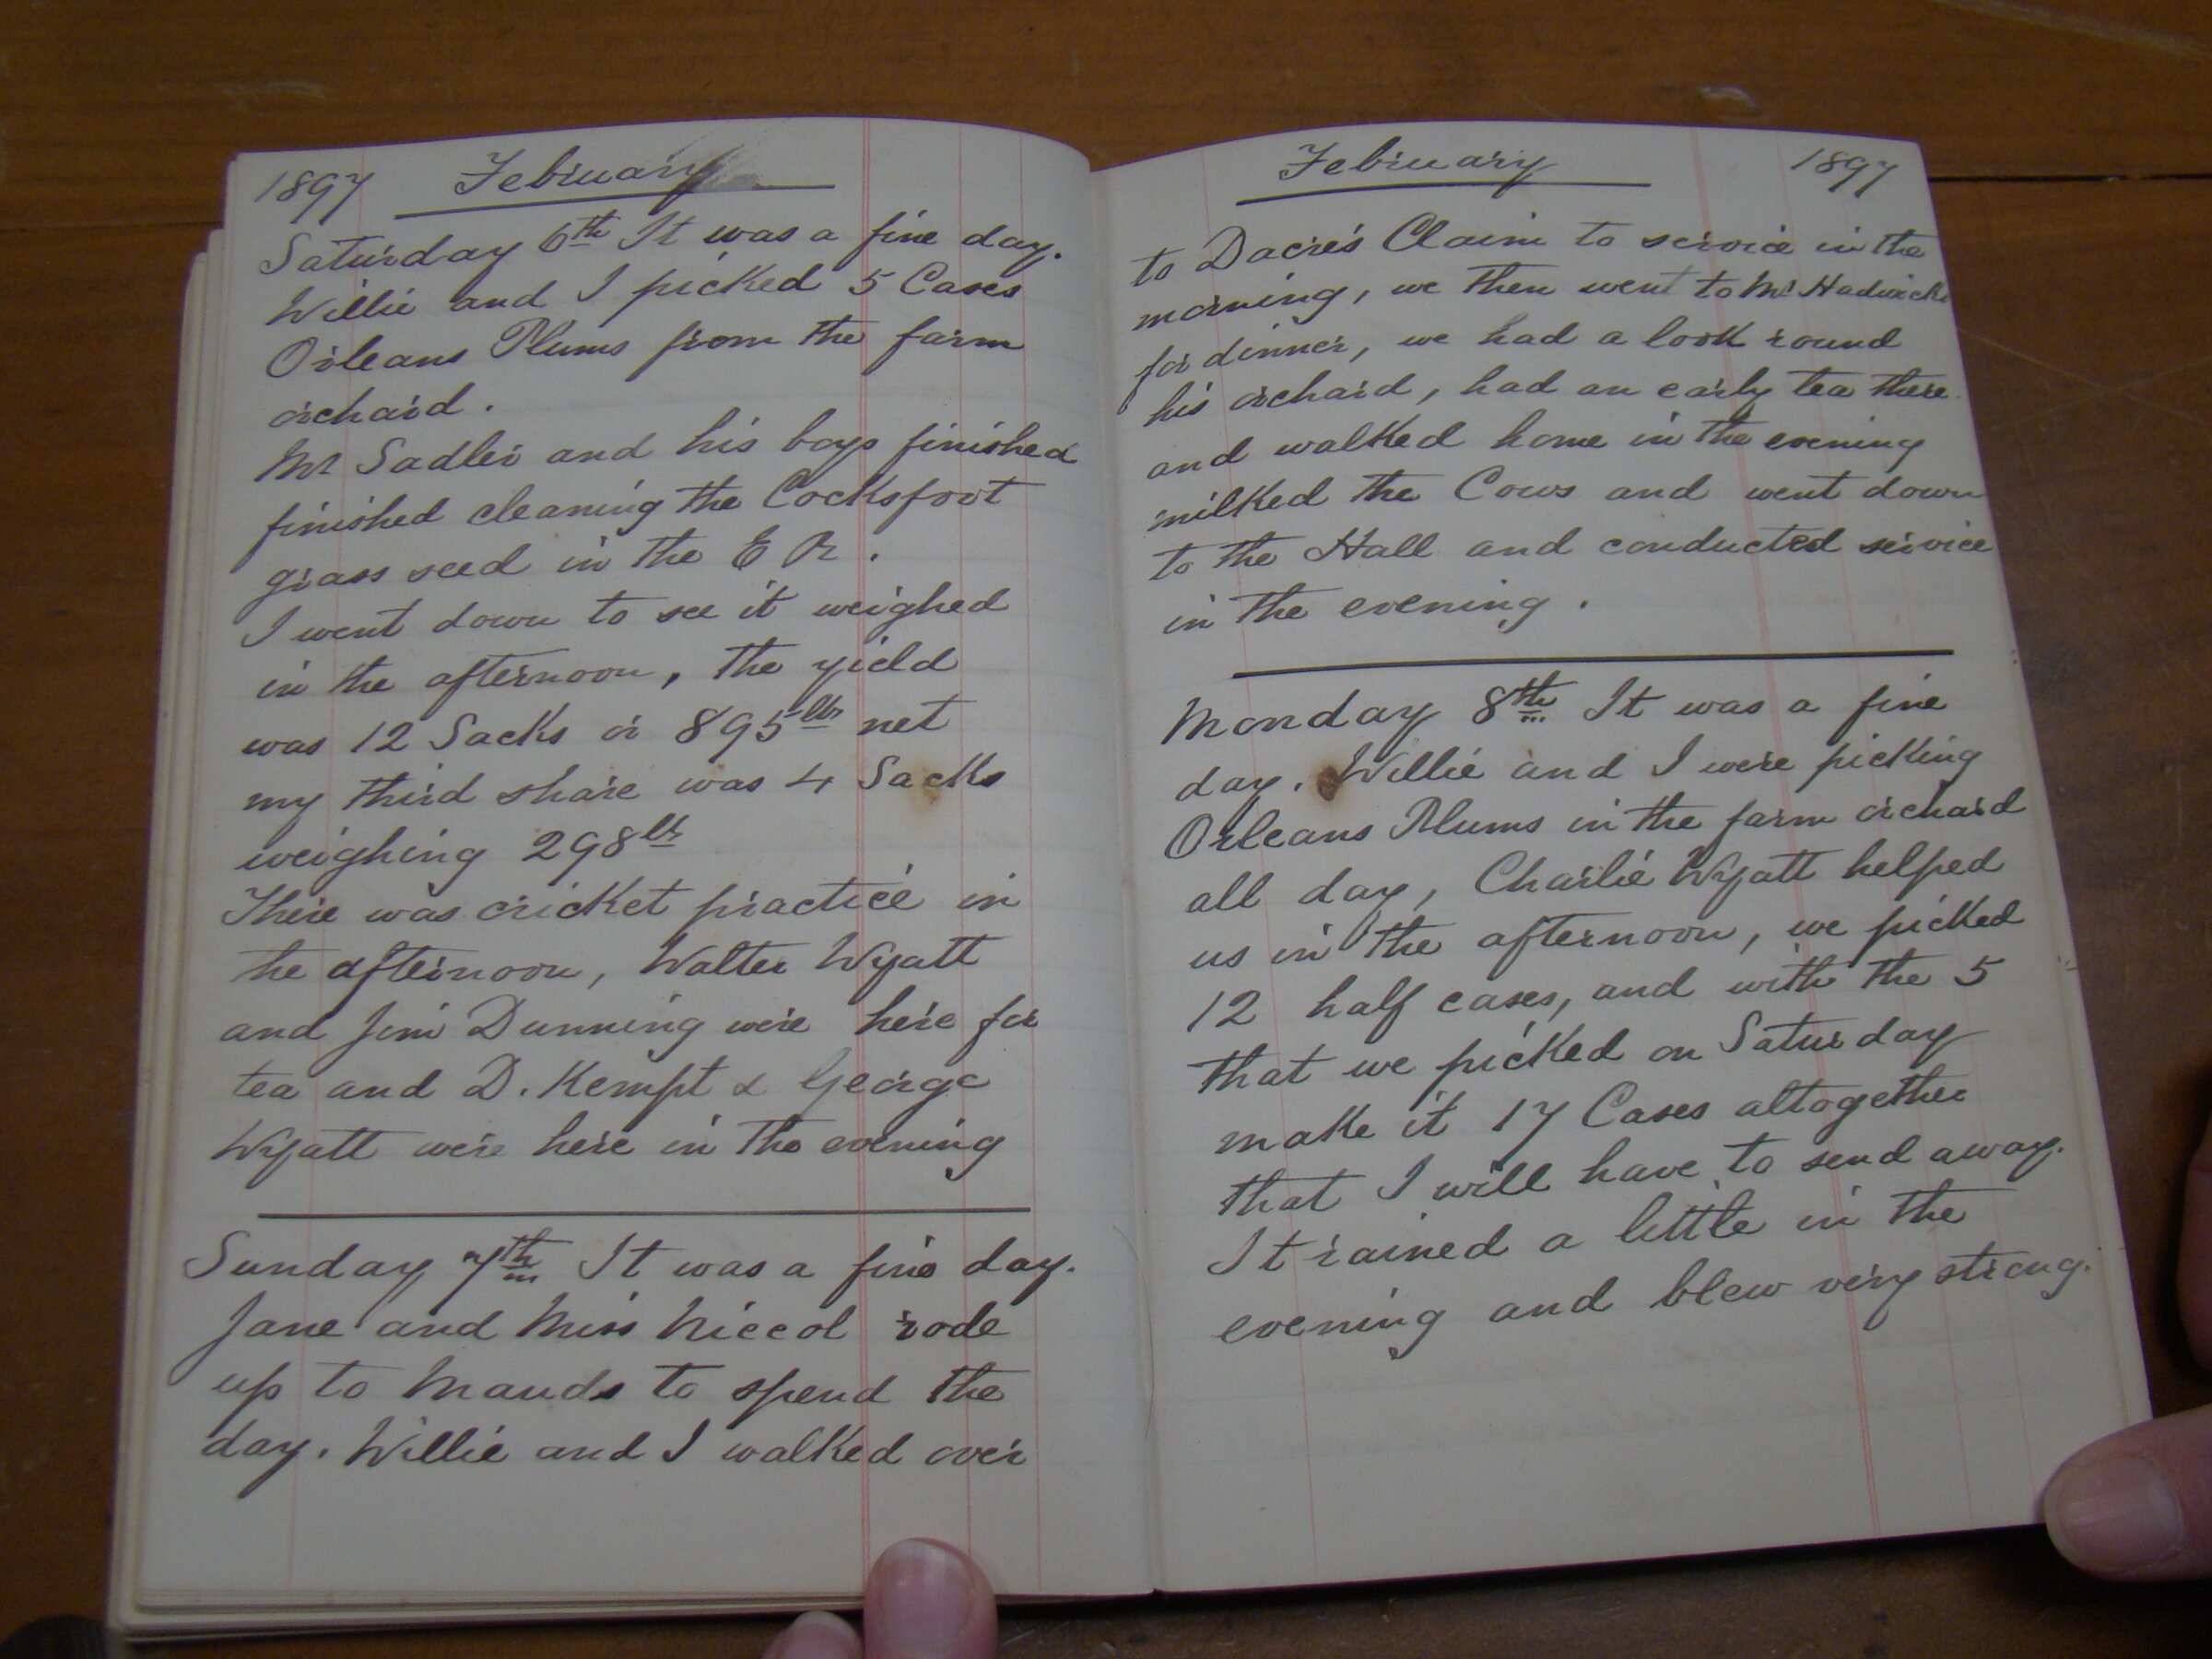 1897 February
Saturday 6th It was a fine day.
Willie and I picked 5 Cases
Orleans Plums from the farm
orchard.
Mr Sadler and his boys finished
finished cleaning the Cocksfoot
grass seed in the E R.
I went down to see it weighed
in the afternoon, the yield
was 12 Sacks or 895 lbs net
my third share was 4 Sacks
weighing 298 lbs
There was cricket practice in
the afternoon, Walter Wyatt
and Jim Dunning were here for
tea and D. Kempt & George
Wyatt were here in the evening
Sunday 7th It was a fine day.
Jane and Miss Niccol rode
up to Mauds to spend the
day. Willie and I walked over
February 1897
to Dacre's Claim to service in the
morning, we then went to Mr Hadwick
for dinner, we had a look round
his orchard, had an early tea there
and walked home in the evening
milked the Cows and went down
to the Hall and conducted service
in the evening.
Monday 8th It was a fine
day. Willie and I were picking
Orleans Plums in the farm orchard
all day, Charlie Wyatt helped
us in the afternoon, we picked
12 half cases, and with the 5
that we picked on Saturday
make it 17 Cases altogether
that I will have to send away.
It rained a little in the
evening and blew very strong.